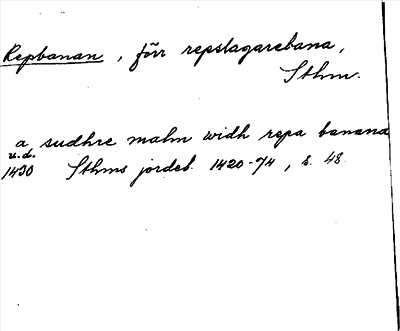 Repbanan, förr repslagarebana,
Sthm.
a sudhre malm widh repa banana
u.d.
1430 Sthms jordeb. 1420-74, s. 48